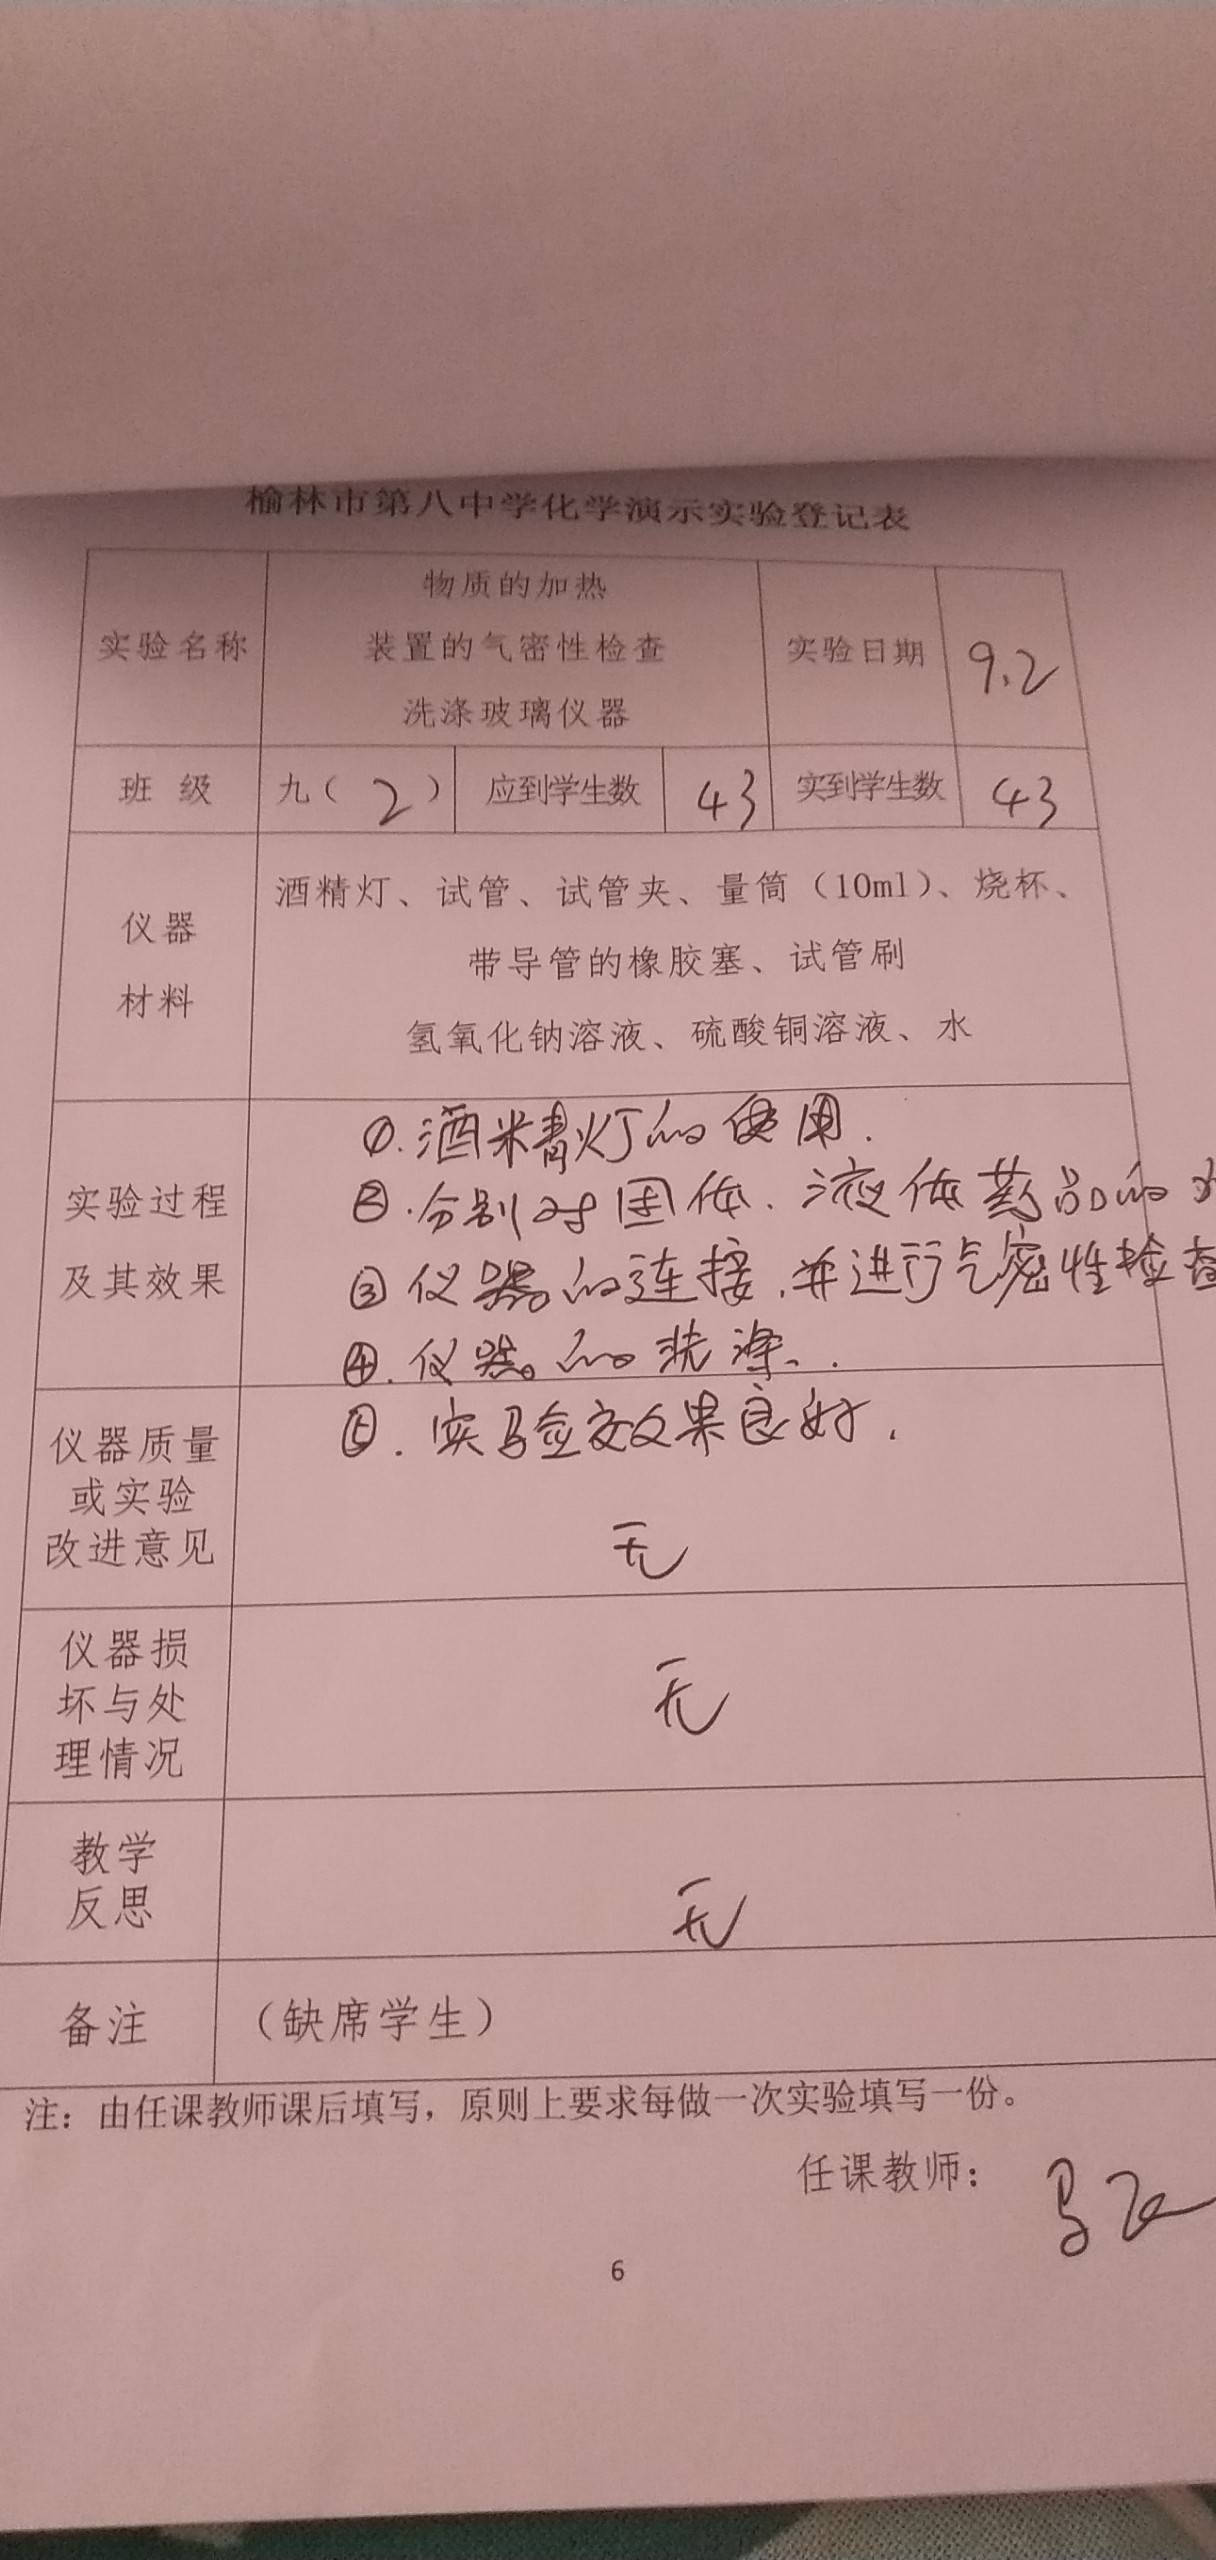 榆林市第八中学化学演示实验登记表
实验名称
物质的加热
装置的气密性检查
洗涤玻璃仪器
实验日期
9.2
班 级
九（2）
应到学生数
43
实到学生数
43
仪器
材料
酒精灯、试管、试管夹、量筒（10ml）、烧杯、
带导管的橡胶塞、试管刷
氢氧化钠溶液、硫酸铜溶液、水
实验过程
及其效果
①.酒精灯的使用.
②.分别对固体.液体药品的
③仪器的连接.并进行气密性检查
④.仪器的洗涤.
⑤.实验效果良好.
仪器质量
或实验
改进意见
无
仪器损
坏与处
理情况
无
教学
反思
无
备注
（缺席学生）
注：由任课教师课后填写，原则上要求每做一次实验填写一份。
任课教师：马
6